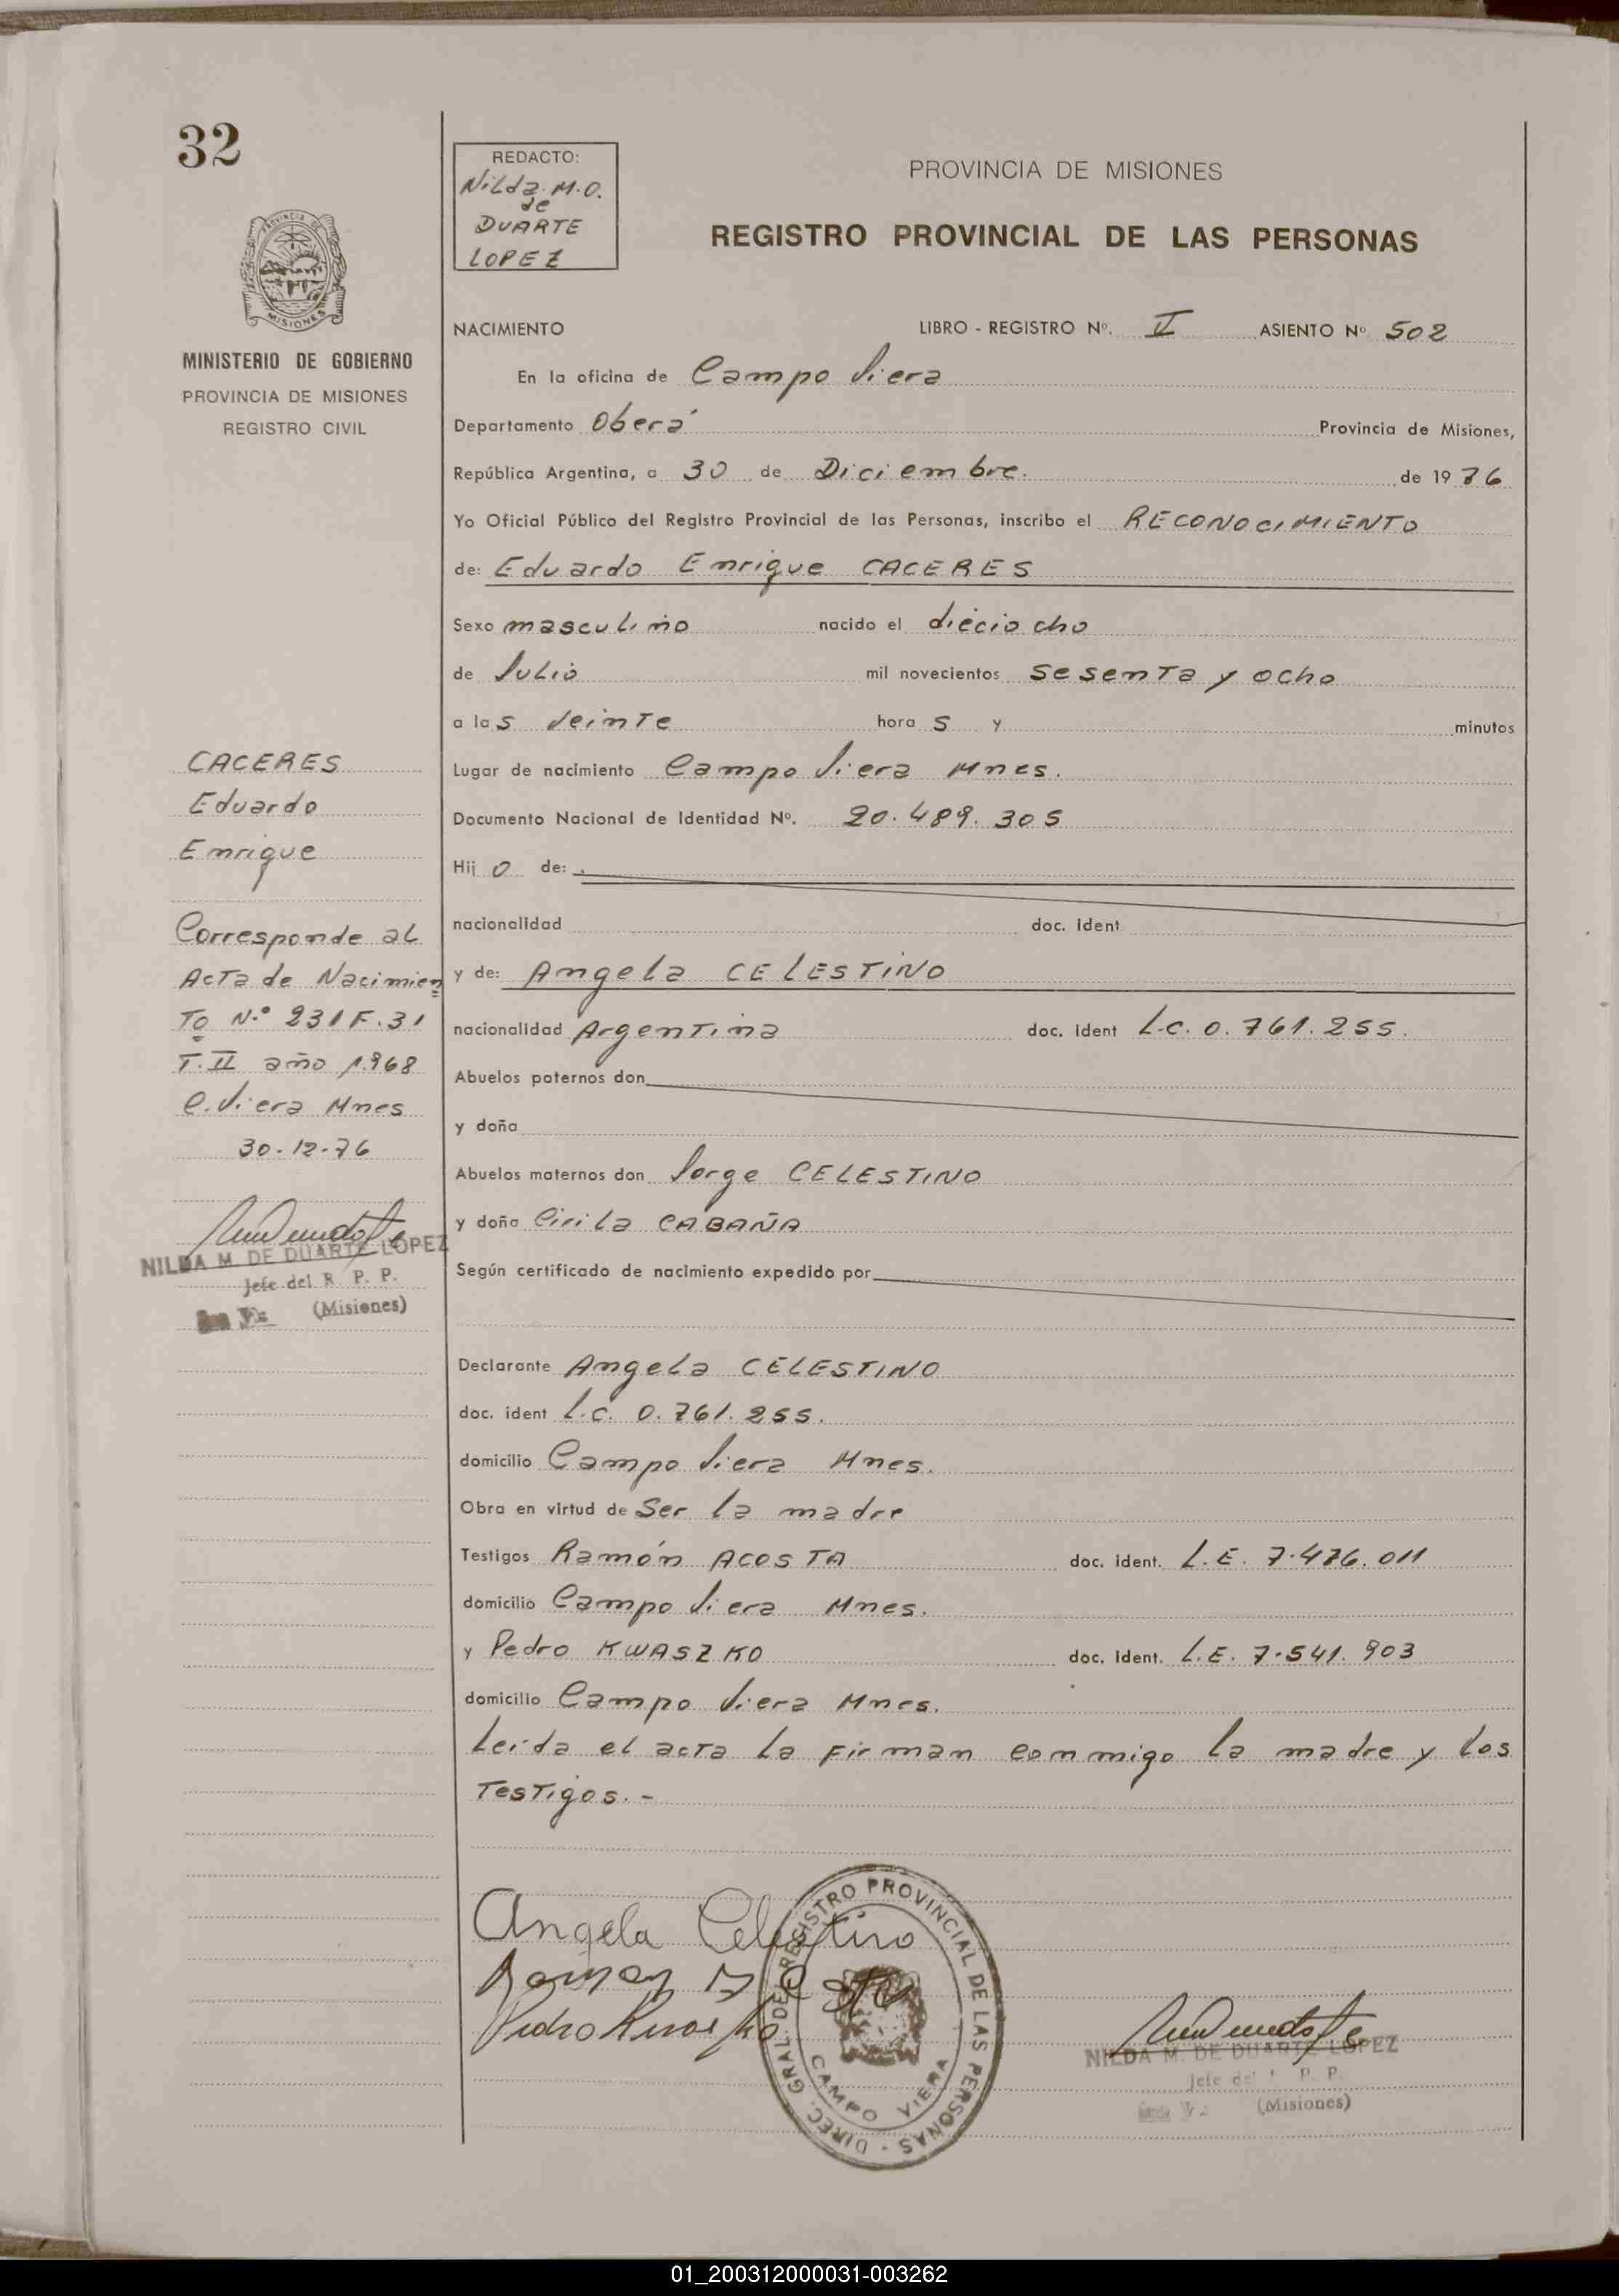 32
REDACTO:
Nilda M.O.
de
DUARTE
LOPEZ
PROVINCIA DE MISIONES
REGISTRO PROVINCIAL DE LAS PERSONAS
PROVINCIA DE
MISIONES
MINISTERIO DE GOBIERNO
PROVINCIA DE MISIONES
REGISTRO CIVIL
NACIMIENTO LIBRO - REGISTRO Nº. II ASIENTO Nº 502
En la oficina de Campo Viera
Departamento Oberá Provincia de Misiones,
República Argentina, a 30 de Diciembre. de 1976
Yo Oficial Público del Registro Provincial de las Personas, inscribo el RECONOCIMIENTO
de: Eduardo Enrique CACERES
Sexo masculino nacido el dieciocho
de Julio mil novecientos sesenta y ocho
a las veinte horas y minutos
Lugar de nacimiento Campo Viera Mnes.
Documento Nacional de Identidad Nº. 20.489.305
Hijo de:
nacionalidad doc. ident
y de: Angela CELESTINO
nacionalidad Argentina doc. ident L.C. 0.761.255.
Abuelos paternos don
y doña
Abuelos maternos don Jorge CELESTINO
y doña Cirila CABAÑA
Según certificado de nacimiento expedido por
Declarante Angela CELESTINO
doc. ident L.C. 0.761.255.
domicilio Campo Viera Mnes.
Obra en virtud de Ser la madre
Testigos Ramón ACOSTA doc. ident. L.E. 7.476.011
domicilio Campo Viera Mnes.
y Pedro KWASZKO doc. ident. L.E. 7.541.903
domicilio Campo Viera Mnes.
Leida el acta la firman conmigo la madre y los
Testigos.-
CACERES
Eduardo
Enrique
Corresponde al
Acta de Nacimien
to N.º 231 F.31
T. II año 1.968
C. Viera Mnes
30-12-76
NILDA M. DE DUARTE LOPEZ
Jefe del R. P. P.
(Misiones)
Angela Celestino
Ramon
Pedro
DIREC. GRAL. DEL REGISTRO PROVINCIAL DE LAS PERSONAS -
CAMPO VIERA
NILDA M. DE DUARTE LOPEZ
Jefe del P. P.
(Misiones)
01_200312000031-003262